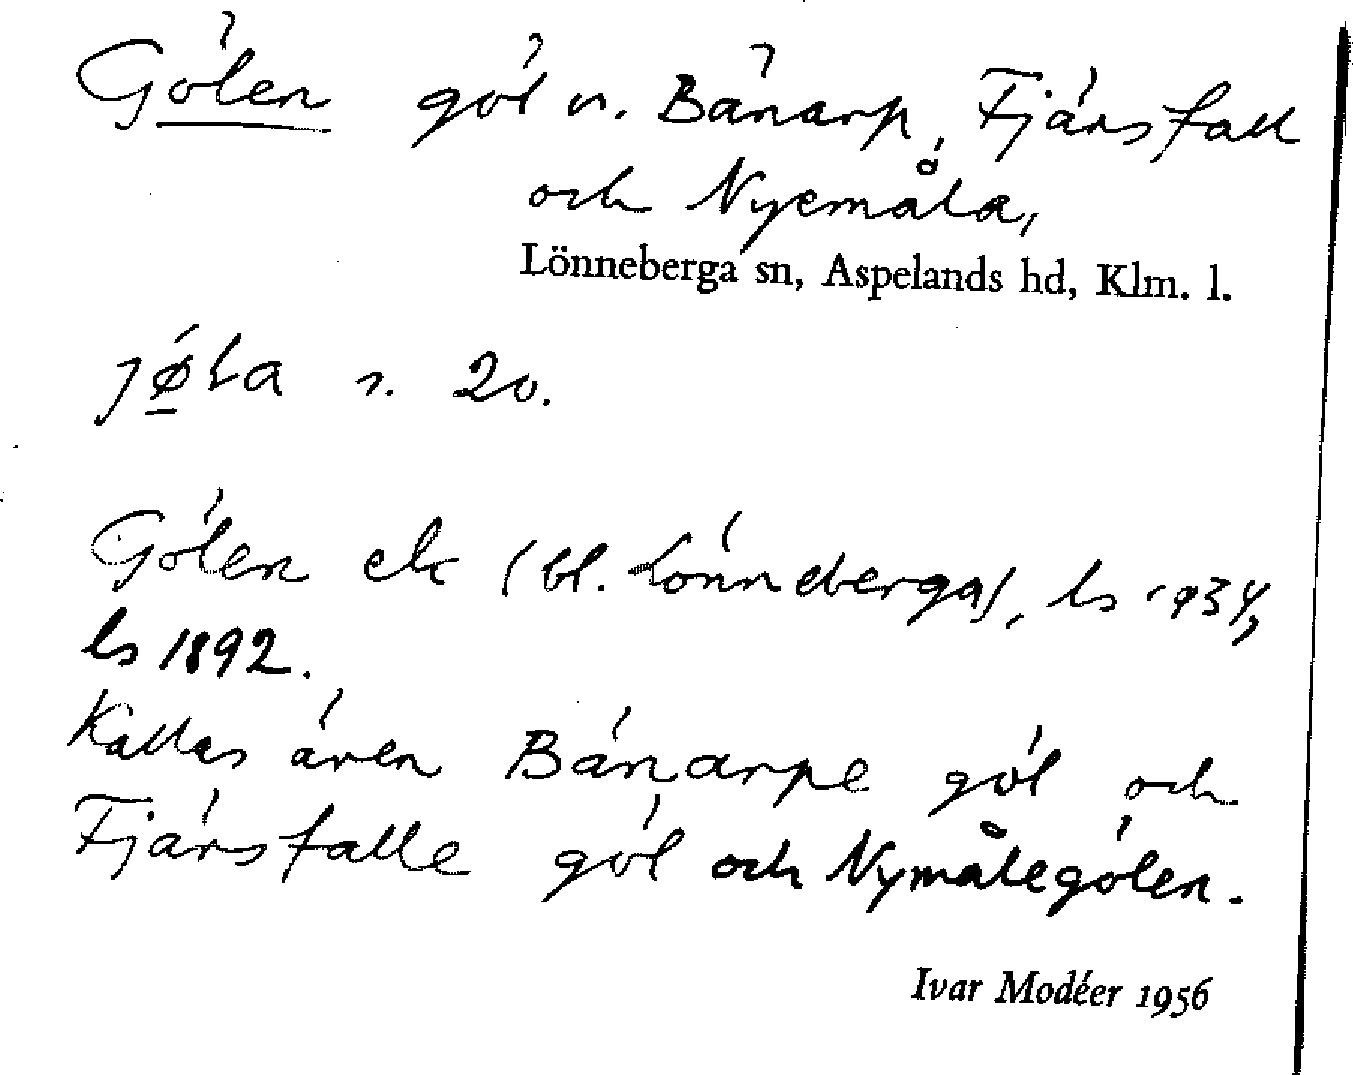 Gölen göl v. Bänarp, Fjärsfall
och Nyemåla,
Lönneberga sn, Aspelands hd, Klm. l.
jǿ̱La s. 20.
Gölen ek (bl. Lönneberga), ls 1934,
ls 1892.
Kallas även Bänarpe göl och
Fjärsfalle göl och Nymålegölen.
Ivar Modéer 1956